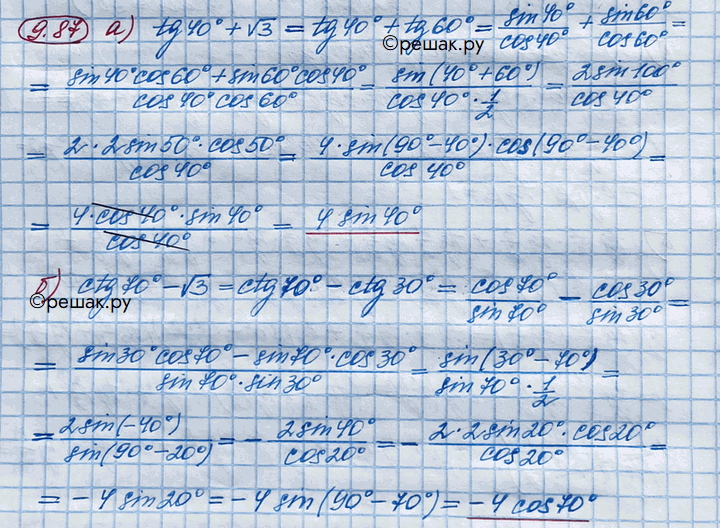 9.87 а) tg40° + √3 = tg40° + tg60° = sin40°/cos40° + sin60°/cos60° =
©решак.ру
= (sin40°cos60° + sin60°cos40°)/(cos40°cos60°) = sin(40°+60°)/(cos40°·1/2) = 2sin100°/cos40°
= 2·2sin50°·cos50°/cos40° = 4·sin(90°-40°)·cos(90°-40°)/cos40° =
= 4·cos40°·sin40°/cos40° = 4sin40°
б) ctg70° - √3 = ctg70° - ctg30° = cos70°/sin70° - cos30°/sin30° =
©решак.ру
= (sin30°cos70° - sin70°·cos30°)/(sin70°·sin30°) = sin(30°-70°)/(sin70°·1/2) =
= 2sin(-40°)/sin(90°-20°) = - 2sin40°/cos20° = - 2·2sin20°·cos20°/cos20° =
= -4sin20° = -4sin(90°-70°) = -4cos70°